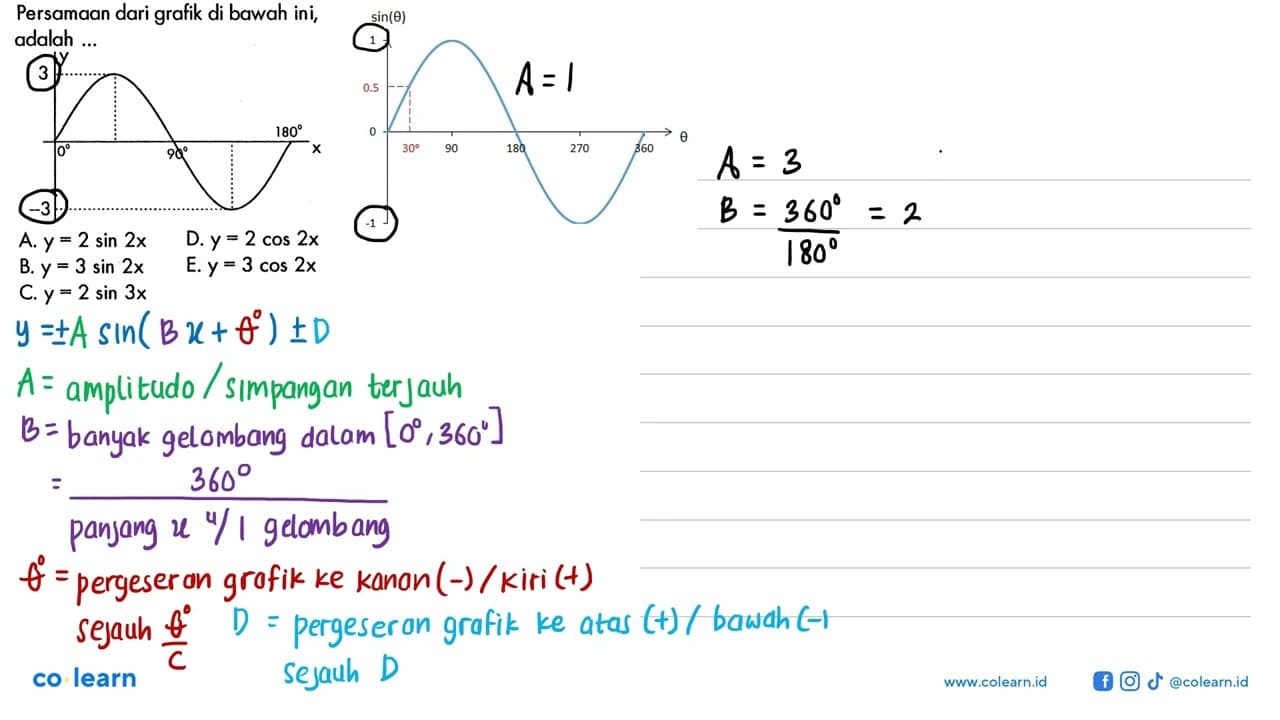 Persamaan dari grafik di bawah ini,
adalah ...
y
3
0°
90°
180°
x
-3
A. y = 2 sin 2x
D. y = 2 cos 2x
B. y = 3 sin 2x
E. y = 3 cos 2x
C. y = 2 sin 3x
sin(θ)
1
0.5
0
30°
90
180
270
360
θ
-1
A = 1
A = 3
B = 360° / 180° = 2
y = ±A sin(Bx + θ°) ± D
A = amplitudo / simpangan terjauh
B = banyak gelombang dalam [0°, 360°]
= 360°
panjang x u/ 1 gelombang
θ° = pergeseran grafik ke kanan (-) / kiri (+)
sejauh θ°/C
D = pergeseran grafik ke atas (+) / bawah (-)
sejauh D
co learn
www.colearn.id
@colearn.id